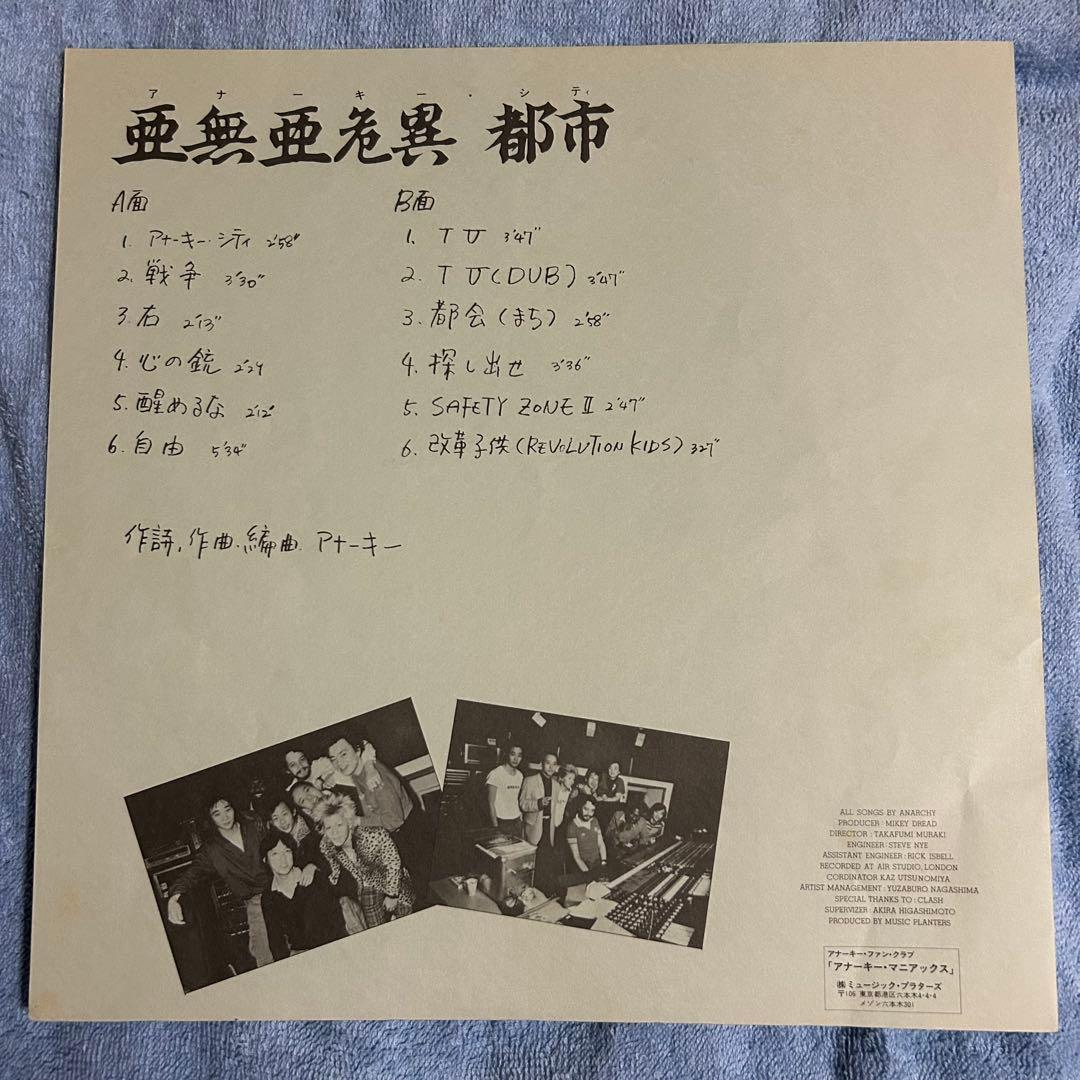 アナーキー・シティ
亜無亜危異 都市
A面
1. アナーキー・シティ 2'58"
2. 戦争 3'30"
3. 右 2'13"
4. 心の銃 2'24
5. 醒めるな 2'12"
6. 自由 5'34"
B面
1. TU 3'47"
2. TU(DUB) 3'47"
3. 都会(まち) 2'58"
4. 探し出せ 3'36"
5. SAFETY ZONE II 2'47"
6. 改革子供(REVOLUTION KIDS) 3'27"
作詩、作曲、編曲、アナーキー
ALL SONGS BY ANARCHY
PRODUCER : MIKEY DREAD
DIRECTOR : TAKAFUMI MURAKI
ENGINEER : STEVE NYE
ASSISTANT ENGINEER : RICK ISBELL
RECORDED AT AIR STUDIO, LONDON
CORDINATOR KAZ UTSUNOMIYA
ARTIST MANAGEMENT : YUZABURO NAGASHIMA
SPECIAL THANKS TO : CLASH
SUPERVIZER : AKIRA HIGASHIMOTO
PRODUCED BY MUSIC PLANTERS
アナーキー・ファン・クラブ
「アナーキー・マニアックス」
㈱ミュージック・プラターズ
〒106 東京都港区六本木4-4-4
メゾン六本木301